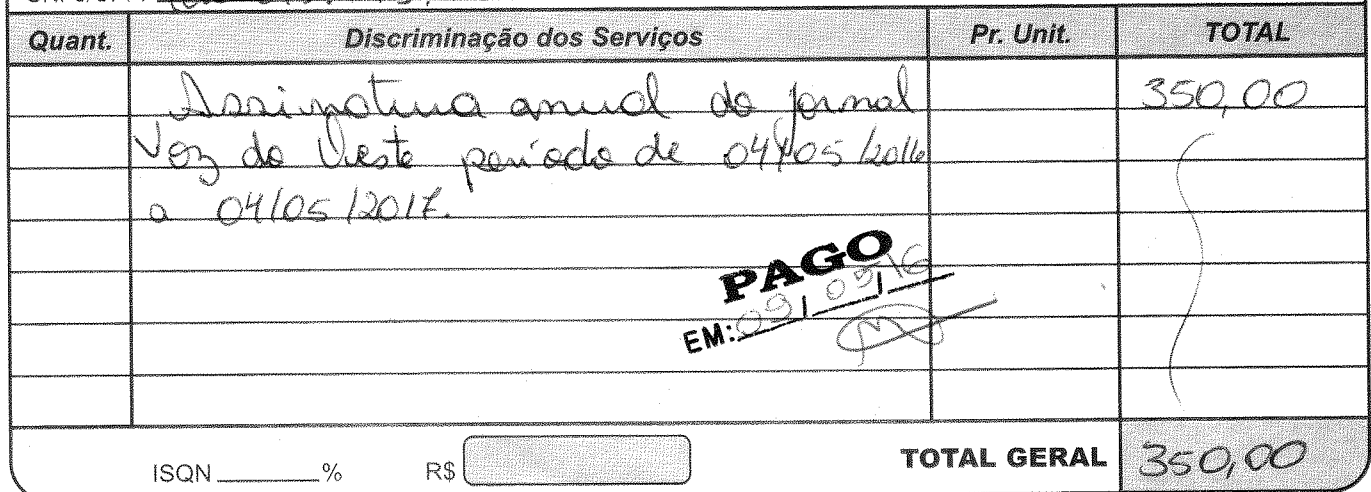 Quant. Discriminação dos Serviços Pr. Unit. TOTAL
Assinatura anual do jornal 350,00
Voz do Oeste período de 04/05/2016
a 04/05/2017.
PAGO
EM: 09/09/16
ISQN ______% R$ TOTAL GERAL 350,00